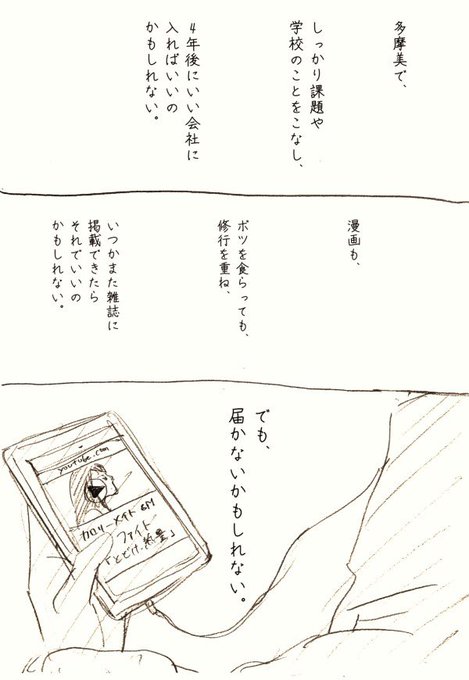 多摩美で、
しっかり課題や
学校のことをこなし、
4年後にいい会社に
入ればいいの
かもしれない。
漫画も、
ボツを食らっても、
修行を重ね、
いつかまた雑誌に
掲載できたら
それでいいの
かもしれない。
でも、
届かないかもしれない。
youtube.com
カロリーメイト CM
ファイト
「とどけ、熱量」